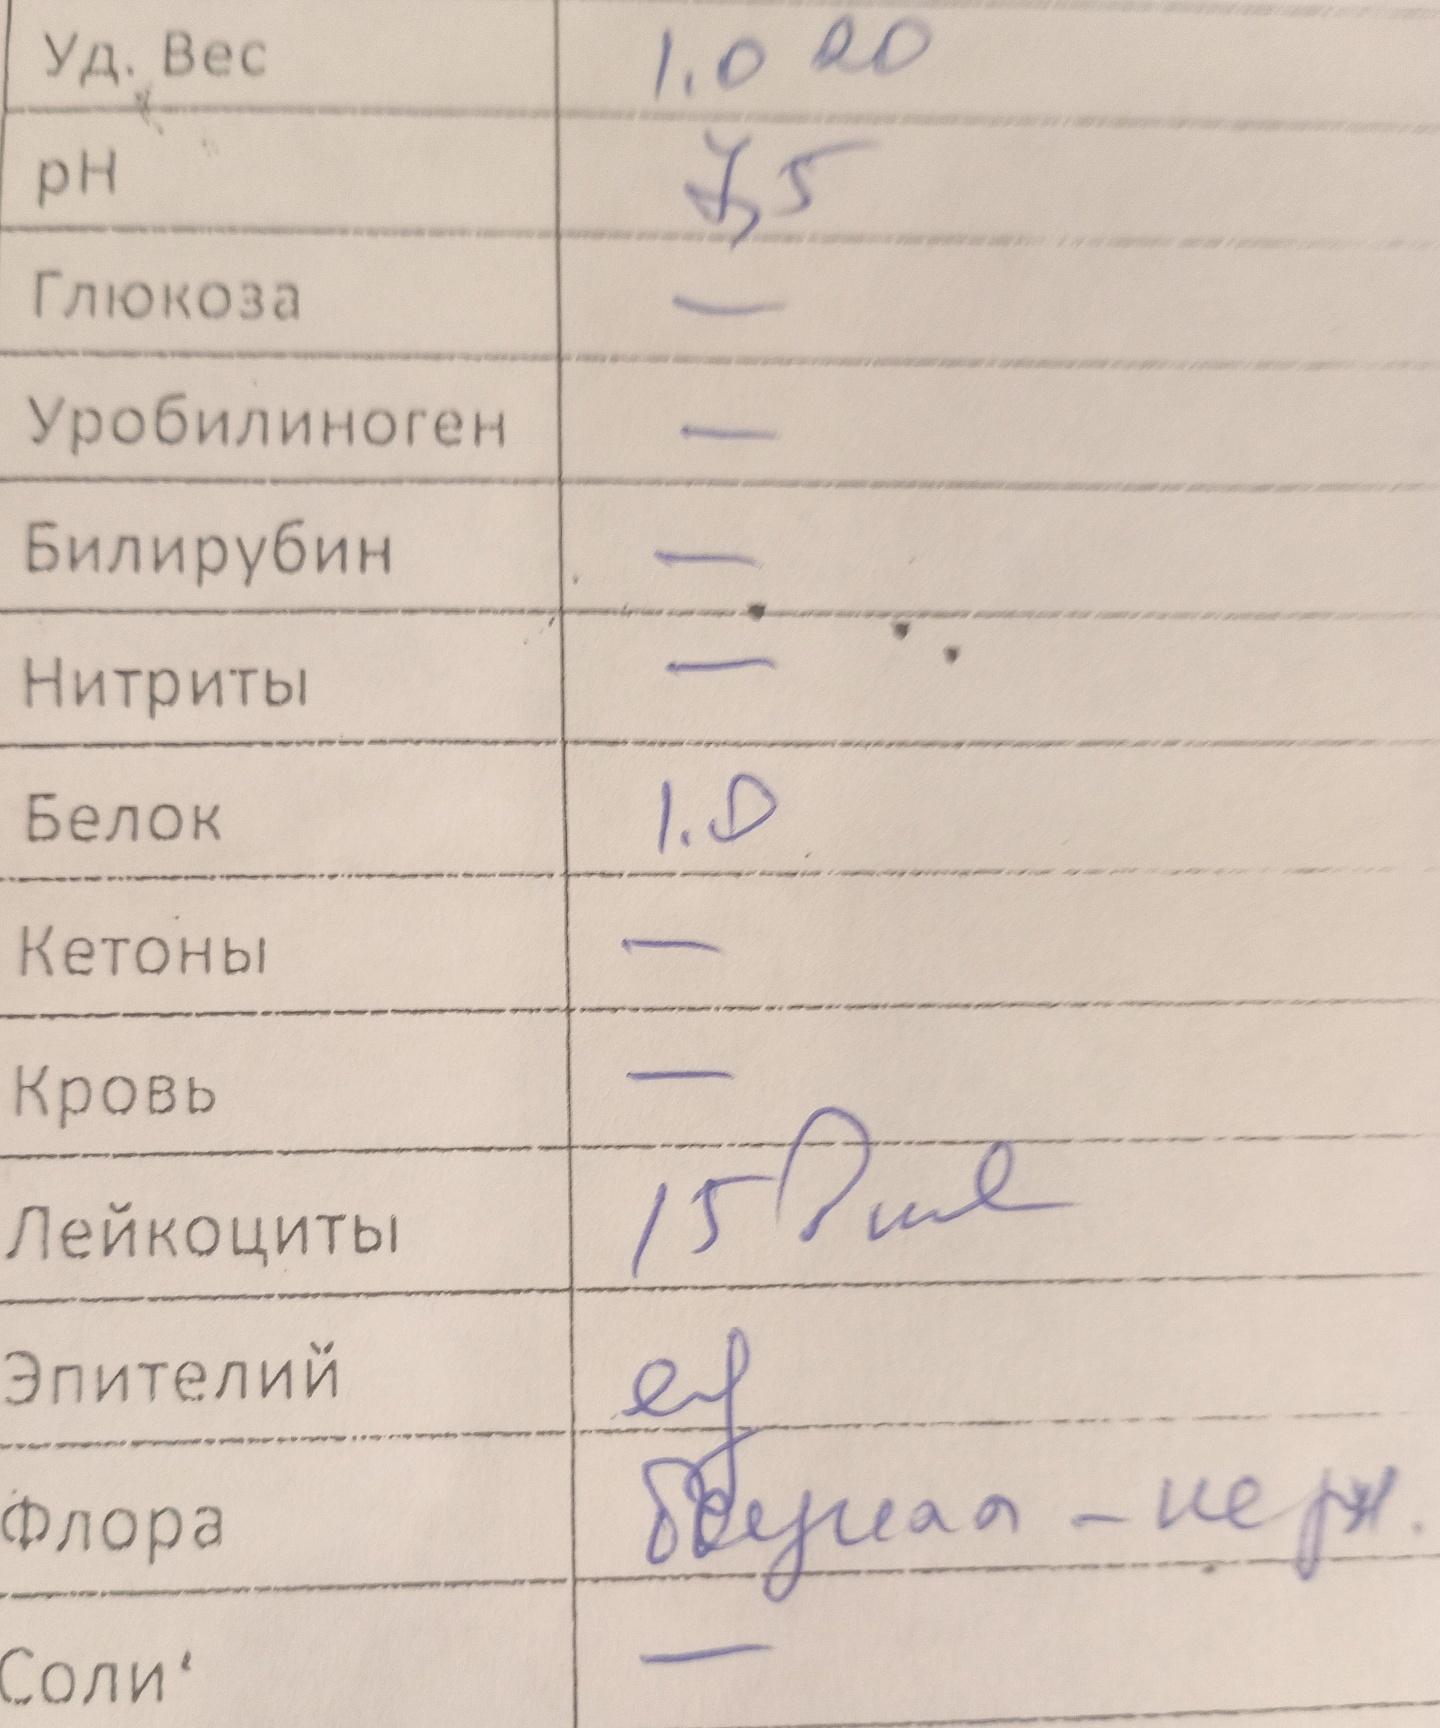 Уд. Вес 1.020
pH 7,5
Глюкоза —
Уробилиноген —
Билирубин —
Нитриты —
Белок 1.0
Кетоны —
Кровь —
Лейкоциты 15
Эпителий
Флора
Соли —